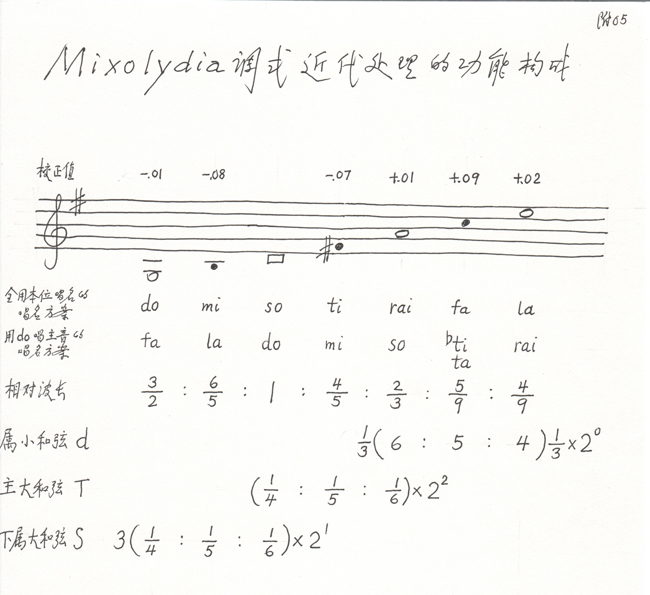 附05
Mixolydia调式近代处理的功能构成
校正值 -.01 -.08 -.07 +.01 +.09 +.02
全用本位唱名的唱名方案 do mi so ti rai fa la
用do唱主音的唱名方案 fa la do mi so ♭ti rai
ta
相对波长 3/2 : 6/5 : 1 : 4/5 : 2/3 : 5/9 : 4/9
属小和弦 d 1/3(6 : 5 : 4)1/3×2⁰
主大和弦 T (1/4 : 1/5 : 1/6)×2²
下属大和弦 S 3(1/4 : 1/5 : 1/6)×2¹